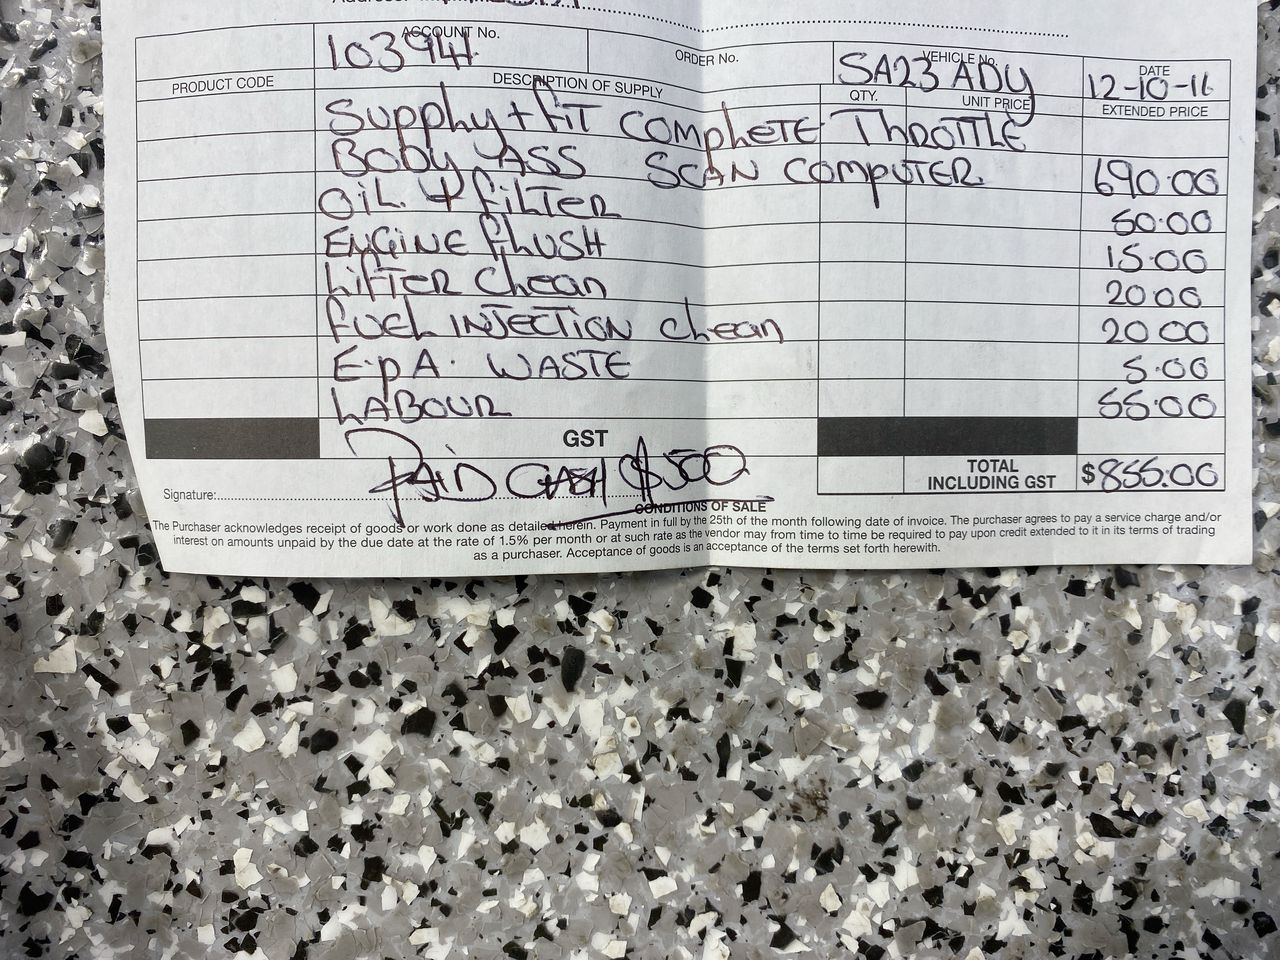 ACCOUNT No.
103941
ORDER No.
VEHICLE No.
SA23 ADY
DATE
12-10-11
PRODUCT CODE
DESCRIPTION OF SUPPLY
QTY.
UNIT PRICE
EXTENDED PRICE
Supply + fit complete Throttle
Body Ass Scan Computer 690.00
Oil + filter 50.00
Engine flush 15.00
Lifter clean 20 00
fuel injection clean 20 00
E.P.A. Waste 5.00
Labour 55.00
GST
Paid Cash $500
Signature:
TOTAL
INCLUDING GST
$855.00
CONDITIONS OF SALE
The Purchaser acknowledges receipt of goods or work done as detailed herein. Payment in full by the 25th of the month following date of invoice. The purchaser agrees to pay a service charge and/or
interest on amounts unpaid by the due date at the rate of 1.5% per month or at such rate as the vendor may from time to time be required to pay upon credit extended to it in its terms of trading
as a purchaser. Acceptance of goods is an acceptance of the terms set forth herewith.